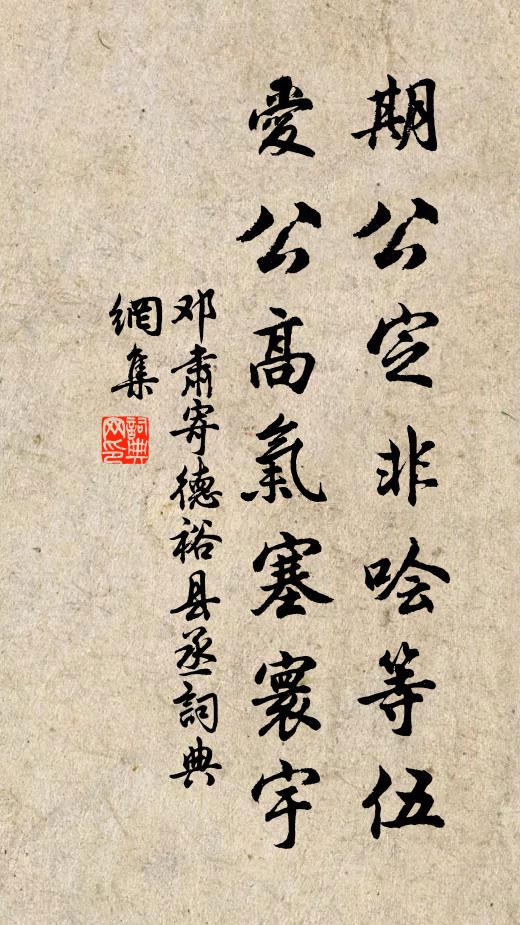 期公定非哙等伍
愛公高氣塞寰宇
邓肅寄德裕县丞詞典
網集
詞典
网印